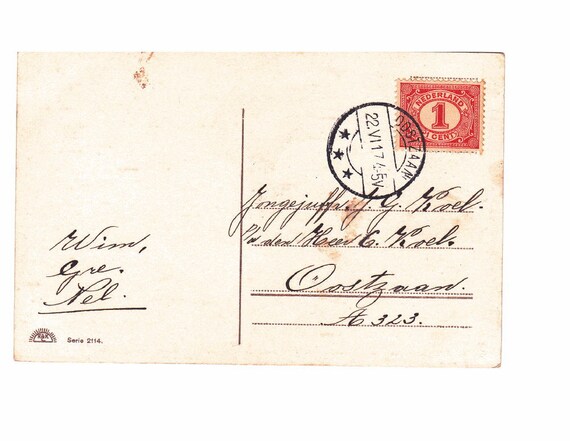 NEDERLAND
1
CENT
OOSTZAAN
22.VI.17 4-5V
Jongejuffr. J. G. Koel.
p/a den Heer C. Koel.
Oostzaan.
A 323.
Wim,
Gre.
Nel.
Serie 2114.